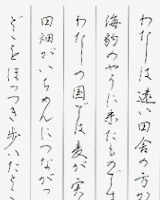 わたしは遠い田舎の方か
海豹のやうに来たものです
わたしの国では麦が実
田畑がいちめんにつながつ
どこをほつつき歩いたところ